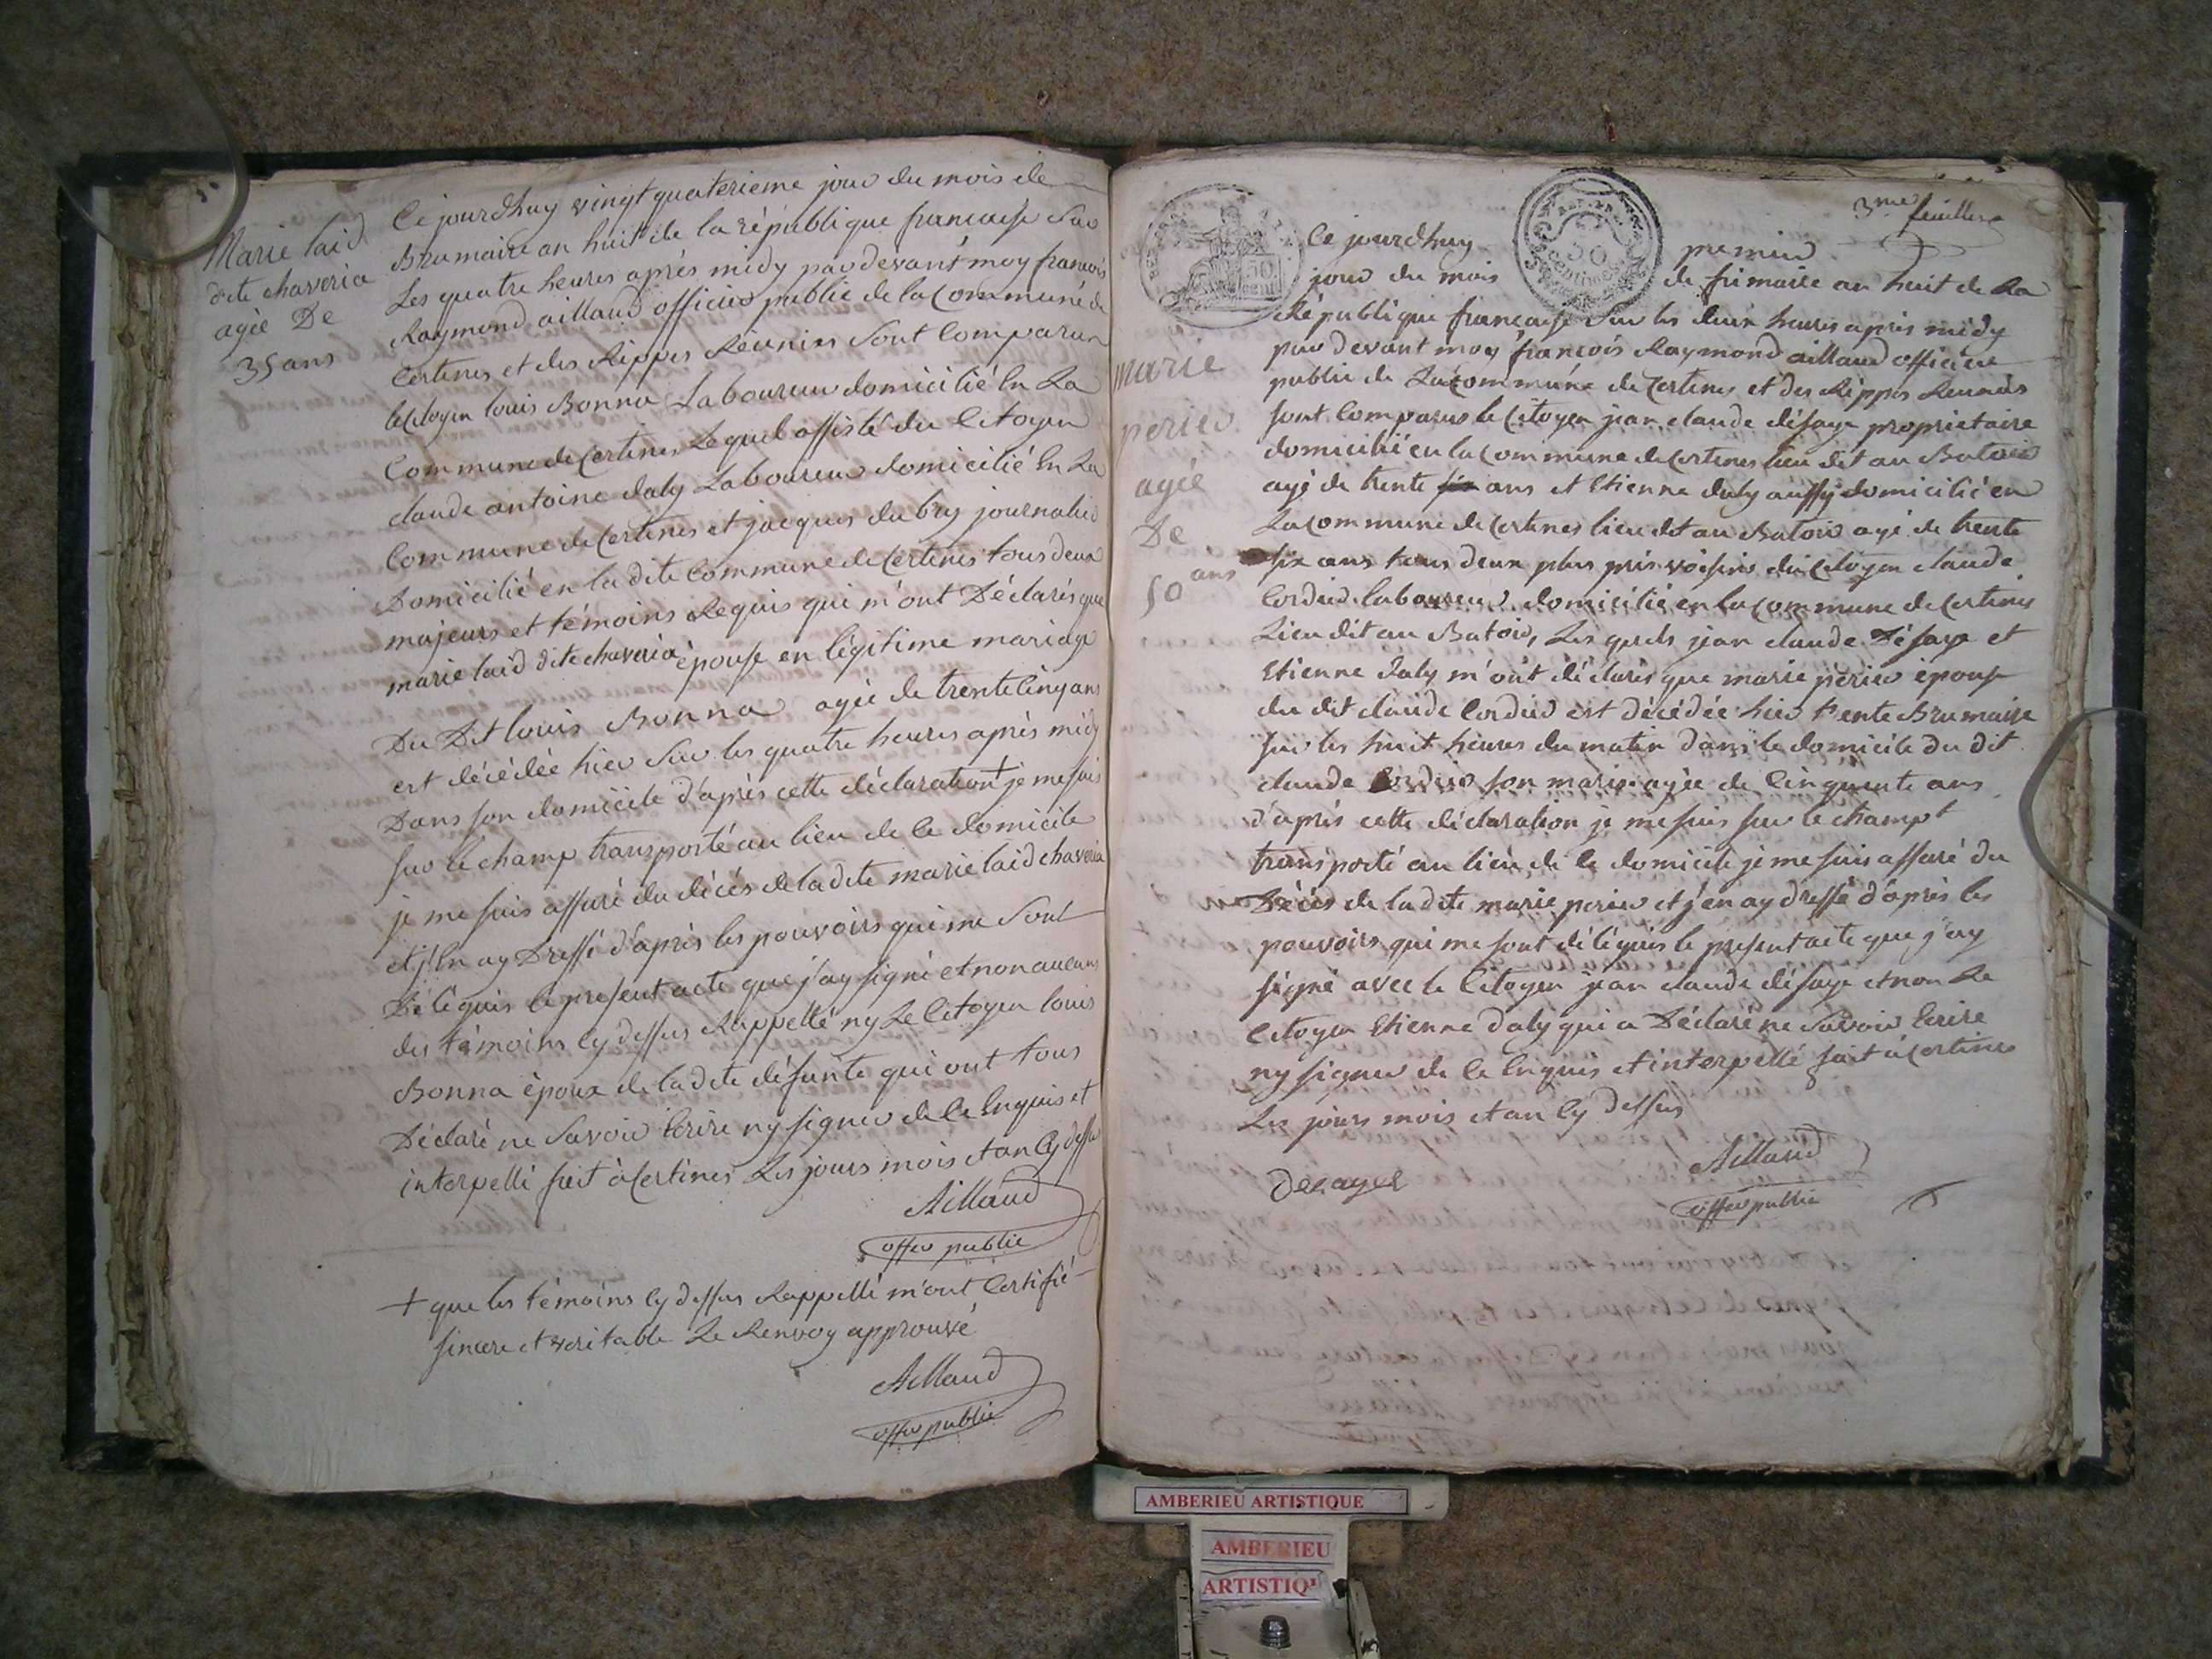 Marie laid
dite chaveria
agée De
35 ans
Ce jourdhuy vingt quaterieme jour du mois de
Brumaire an huit de la république francaise Sur
Les quatre heures après midy par devant moy francois
Raymond aillaud officier public de la Commune de
Certines et des Rippes Réunies Sont Comparu
le Citoyen louis Bonna Laboureur domicilié En La
Commune de Certines Lequel assisté du Citoyen
claude antoine daly Laboureur domicilié En La
Commune de Certines et jacques dubry journalier
Domicilié en la dite Commune de Certines tous deux
majeurs et témoins Requis qui m'ont Déclarés que
marie laid dite chaveria épouse en légitime mariage
Du Dit louis Bonna agée de trente Cinq ans
est décédée hier Sur les quatre heures après midy
Dans son domicile d'après cette déclaration + je me suis
sur le champ transporté au lieu de Ce domicile
je me suis assuré du décés de la dite marie laid chaveria
et j'En ay Dressé d'après les pouvoirs qui me Sont
Délégués le present acte que j'ay signé et non aucuns
des témoins Cy dessus Rappellé ny Le Citoyen louis
Bonna époux de la dite défunte qui ont tous
Déclaré ne Savoir Ecrire ny signer de Ce Enquis et
interpellé fait à Certines Les jours mois et an Cy dessus
Aillaud
offer public
+ que les témoins Cy dessus Rappellé m'ont Certifié
sincere et veritable Le Renvoy approuvé
Aillaud
offer public
3me feuillet
50 cent
50 centimes
marie
perier
agée
De
50 ans
Ce jourdhuy premier
jour du mois de frimaire an huit de La
République francaise Sur les deux heures après midy
par devant moy francois Raymond aillaud officier
public de La Commune de Certines et des Rippes Reunies
sont Comparus le Citoyen jean claude désaye propriétaire
domicilié en la Commune de Certines lieu dit au Batoir
agé de trente six ans et Etienne daly aussy domicilié en
La Commune de Certines lieu dit au Batoir agé de trente
six ans tous deux plus près voisins du Citoyen claude
Cordier laboureur domicilié en la Commune de Certines
Lieu dit au Batoir, Les quels jean claude Désaye et
Etienne daly m'ont déclarés que marie périer épouse
du dit claude Cordier est décédée hier trente Brumaire
sur les huit heures du matin dans le domicile du dit
claude Cordier son maris agée de Cinquante ans
d'après cette déclaration je me suis sur le champt
transporté au lieu de Ce domicile je me suis assuré du
Décés de la dite marie perier et j'en ay dressé d'après les
pouvoirs qui me sont délégués le present acte que j'ay
signé avec le Citoyen jean claude désaye et non Le
Citoyen Etienne daly qui a Déclaré ne Savoir Ecrire
ny signer de Ce Enquis et interpellé fait à Certines
Les jours mois et an Cy dessus
Aillaud
offer public
AMBERIEU ARTISTIQUE
AMBERIEU